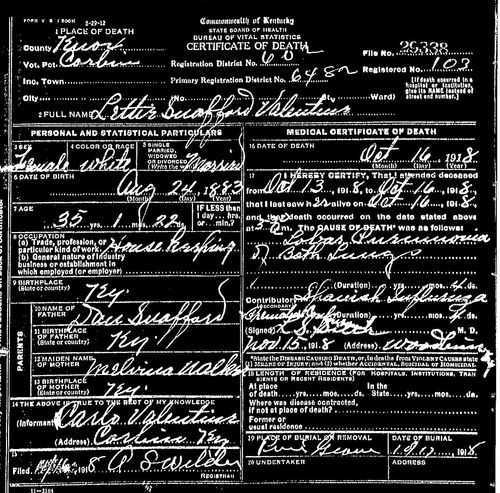 FORM V. S. 1-BOOM 2-29-12
Commonwealth of Kentucky
STATE BOARD OF HEALTH
BUREAU OF VITAL STATISTICS
CERTIFICATE OF DEATH
1 PLACE OF DEATH
County Knox
Vot. Pct. Corbin
Registration District No. 602
File No.
Inc. Town
Primary Registration District No. 6482
Registered No. 103
City No. St., Ward)
(If death occurred in a hospital or institution, give its NAME instead of street and number.)
2 FULL NAME Letter Swafford Valentine
PERSONAL AND STATISTICAL PARTICULARS
3 SEX Female
4 COLOR OR RACE white
5 SINGLE, MARRIED, WIDOWED OR DIVORCED (Write the word) Married
6 DATE OF BIRTH
Aug 24, 1883
(Month) (Day) (Year)
7 AGE
35 yrs. 1 mos. 22 ds.
IF LESS than 1 day... hrs. or... min.?
8 OCCUPATION
(a) Trade, profession, or particular kind of work House keeping
(b) General nature of industry business or establishment in which employed (or employer)
9 BIRTHPLACE
(State or country) Ky.
PARENTS
10 NAME OF FATHER Dan Swafford
11 BIRTHPLACE OF FATHER
(State or country) Ky.
12 MAIDEN NAME OF MOTHER Melvina
13 BIRTHPLACE OF MOTHER
(State or country) Ky.
14 THE ABOVE IS TRUE TO THE BEST OF MY KNOWLEDGE
(Informant) Valentine
(Address) Corbin Ky
15
Filed 1918
REGISTRAR
11-3184
MEDICAL CERTIFICATE OF DEATH
16 DATE OF DEATH
Oct 16, 1918
(Month) (Day) (Year)
17 I HEREBY CERTIFY, That I attended deceased
from Oct 13, 1918, to Oct 16, 1918,
that I last saw her alive on Oct 16, 1918,
and that death occurred on the date stated above
at m. The CAUSE OF DEATH* was as follows:
Lobar Pneumonia
of Both Lungs
(Duration) yrs. mos. 4 ds.
Contributory Spanish Influenza
(SECONDARY)
(Duration) yrs. mos. ds.
(Signed) M. D.
Nov. 15, 1918 (Address)
*State the DISEASE CAUSING DEATH, or, in deaths from VIOLENT CAUSES state (1) MEANS OF INJURY; and (2) whether ACCIDENTAL, SUICIDAL or HOMICIDAL
18 LENGTH OF RESIDENCE (FOR HOSPITALS, INSTITUTIONS, TRANSIENTS OR RECENT RESIDENTS)
At place of death yrs. mos. ds. In the State yrs. mos. ds.
Where was disease contracted, if not at place of death?
Former or usual residence
19 PLACE OF BURIAL OR REMOVAL
DATE OF BURIAL
20 UNDERTAKER
ADDRESS